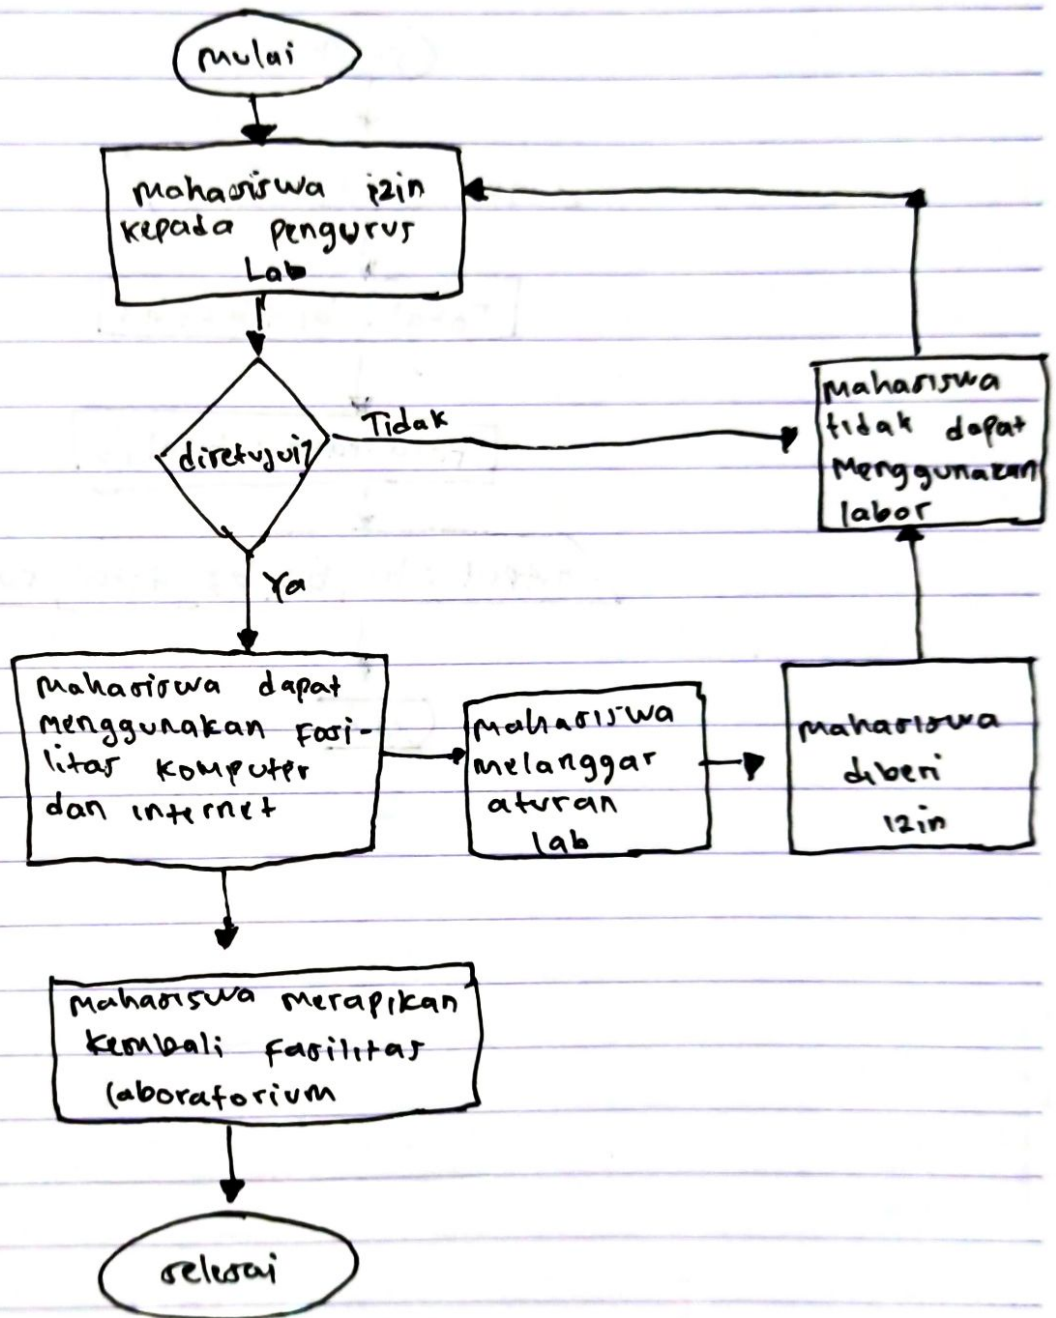 mulai
mahasiswa izin
kepada pengurus
Lab
disetujui?
Tidak
mahasiswa
tidak dapat
menggunakan
labor
Ya
mahasiswa dapat
menggunakan Fasi-
litas komputer
dan internet
mahasiswa
melanggar
aturan
lab
mahasiswa
diberi
izin
mahasiswa merapikan
kembali Fasilitas
laboratorium
selesai